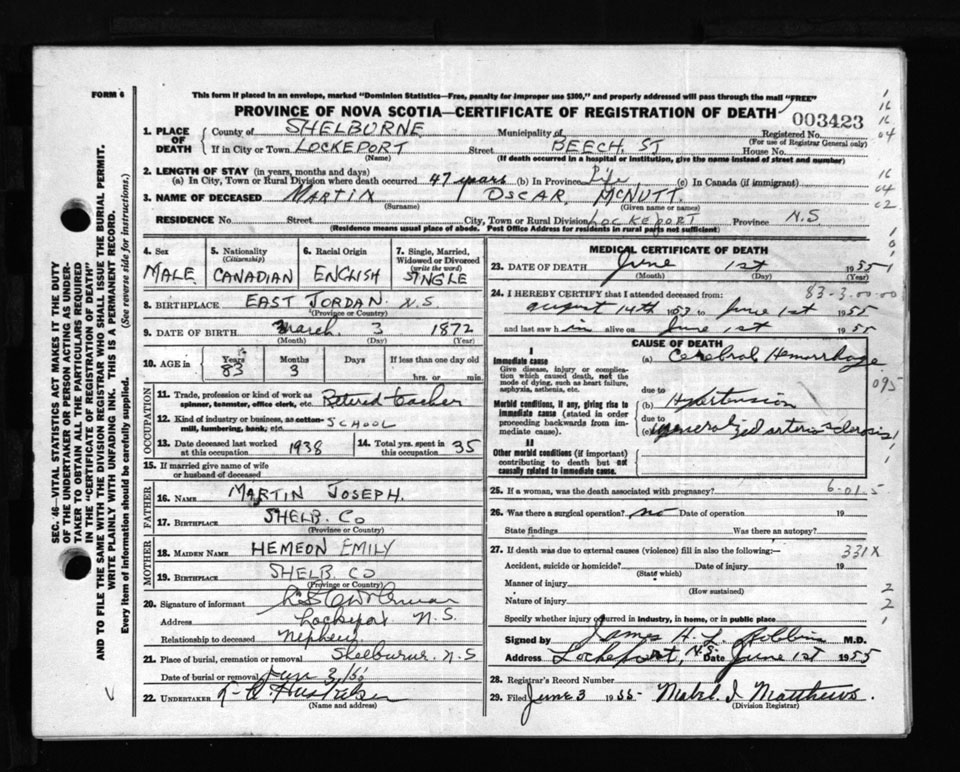 FORM 6
This form if placed in an envelope, marked "Dominion Statistics—Free, penalty for improper use $300," and properly addressed will pass through the mail "FREE"
PROVINCE OF NOVA SCOTIA—CERTIFICATE OF REGISTRATION OF DEATH
003423
1. PLACE OF DEATH
County of SHELBURNE Municipality of Registered No.
(For use of Registrar General only)
If in City or Town LOCKEPORT Street BEECH ST House No.
(Name) (If death occurred in a hospital or institution, give the name instead of street and number)
2. LENGTH OF STAY (in years, months and days)
(a) In City, Town or Rural Division where death occurred 47 years (b) In Province Life (c) In Canada (if immigrant)
3. NAME OF DECEASED MARTIN OSCAR MCNUTT
(Surname) (Given name or names)
RESIDENCE No. Street City, Town or Rural Division LOCKEPORT Province N.S
(Residence means usual place of abode. Post Office Address for residents in rural parts not sufficient)
4. Sex MALE
5. Nationality (Citizenship) CANADIAN
6. Racial Origin ENGLISH
7. Single, Married, Widowed or Divorced (write the word) SINGLE
8. BIRTHPLACE EAST JORDAN. N.S
(Province or Country)
9. DATE OF BIRTH March 3 1872
(Month) (Day) (Year)
10. AGE in Years 83 Months 3 Days If less than one day old
hrs. or min.
OCCUPATION
11. Trade, profession or kind of work as spinner, teamster, office clerk, etc. Retired teacher
12. Kind of industry or business, as cotton-mill, lumbering, bank, etc. SCHOOL
13. Date deceased last worked at this occupation 1938
14. Total yrs. spent in this occupation 35
15. If married give name of wife or husband of deceased
FATHER
16. NAME MARTIN JOSEPH.
17. BIRTHPLACE SHELB. CO
(Province or Country)
MOTHER
18. MAIDEN NAME HEMEON EMILY
19. BIRTHPLACE SHELB. CO
(Province or Country)
20. Signature of informant
Address Lockeport N.S.
Relationship to deceased nephew
21. Place of burial, cremation or removal Shelburne. N.S
Date of burial or removal
22. UNDERTAKER
(Name and address)
MEDICAL CERTIFICATE OF DEATH
23. DATE OF DEATH June 1st 1955
(Month) (Day) (Year)
24. I HEREBY CERTIFY that I attended deceased from: 83-3.00.00
august 14th 1953 to June 1st 1955
and last saw him alive on June 1st 1955
CAUSE OF DEATH
I
Immediate cause
Give disease, injury or complication which caused death, not the mode of dying, such as heart failure, asphyxia, asthenia, etc.
(a) Cerebral Hemorrhage
095
due to
Morbid conditions, if any, giving rise to immediate cause (stated in order proceeding backwards from immediate cause).
(b) Hypertension
due to
(c) generalized arterio-sclerosis
II
Other morbid conditions (if important) contributing to death but not causally related to immediate cause.
25. If a woman, was the death associated with pregnancy? 6-01.5
26. Was there a surgical operation? no Date of operation 19
State findings Was there an autopsy?
27. If death was due to external causes (violence) fill in also the following:— 331X
Accident, suicide or homicide? Date of injury 19
(State which)
Manner of injury
(How sustained)
Nature of injury
Specify whether injury occurred in industry, in home, or in public place
Signed by James H. L. Robbins M.D.
Address Lockeport, N.S. Date June 1st 1955
28. Registrar's Record Number
29. Filed June 3 1955 Mabel I Matthews.
(Division Registrar)
SEC. 46—VITAL STATISTICS ACT MAKES IT THE DUTY
OF THE UNDERTAKER OR PERSON ACTING AS UNDERTAKER TO OBTAIN ALL THE PARTICULARS REQUIRED
IN THE "CERTIFICATE OF REGISTRATION OF DEATH"
AND TO FILE THE SAME WITH THE DIVISION REGISTRAR WHO SHALL ISSUE THE BURIAL PERMIT.
WRITE PLAINLY WITH UNFADING INK. THIS IS A PERMANENT RECORD.
Every item of information should be carefully supplied. (See reverse side for instructions.)